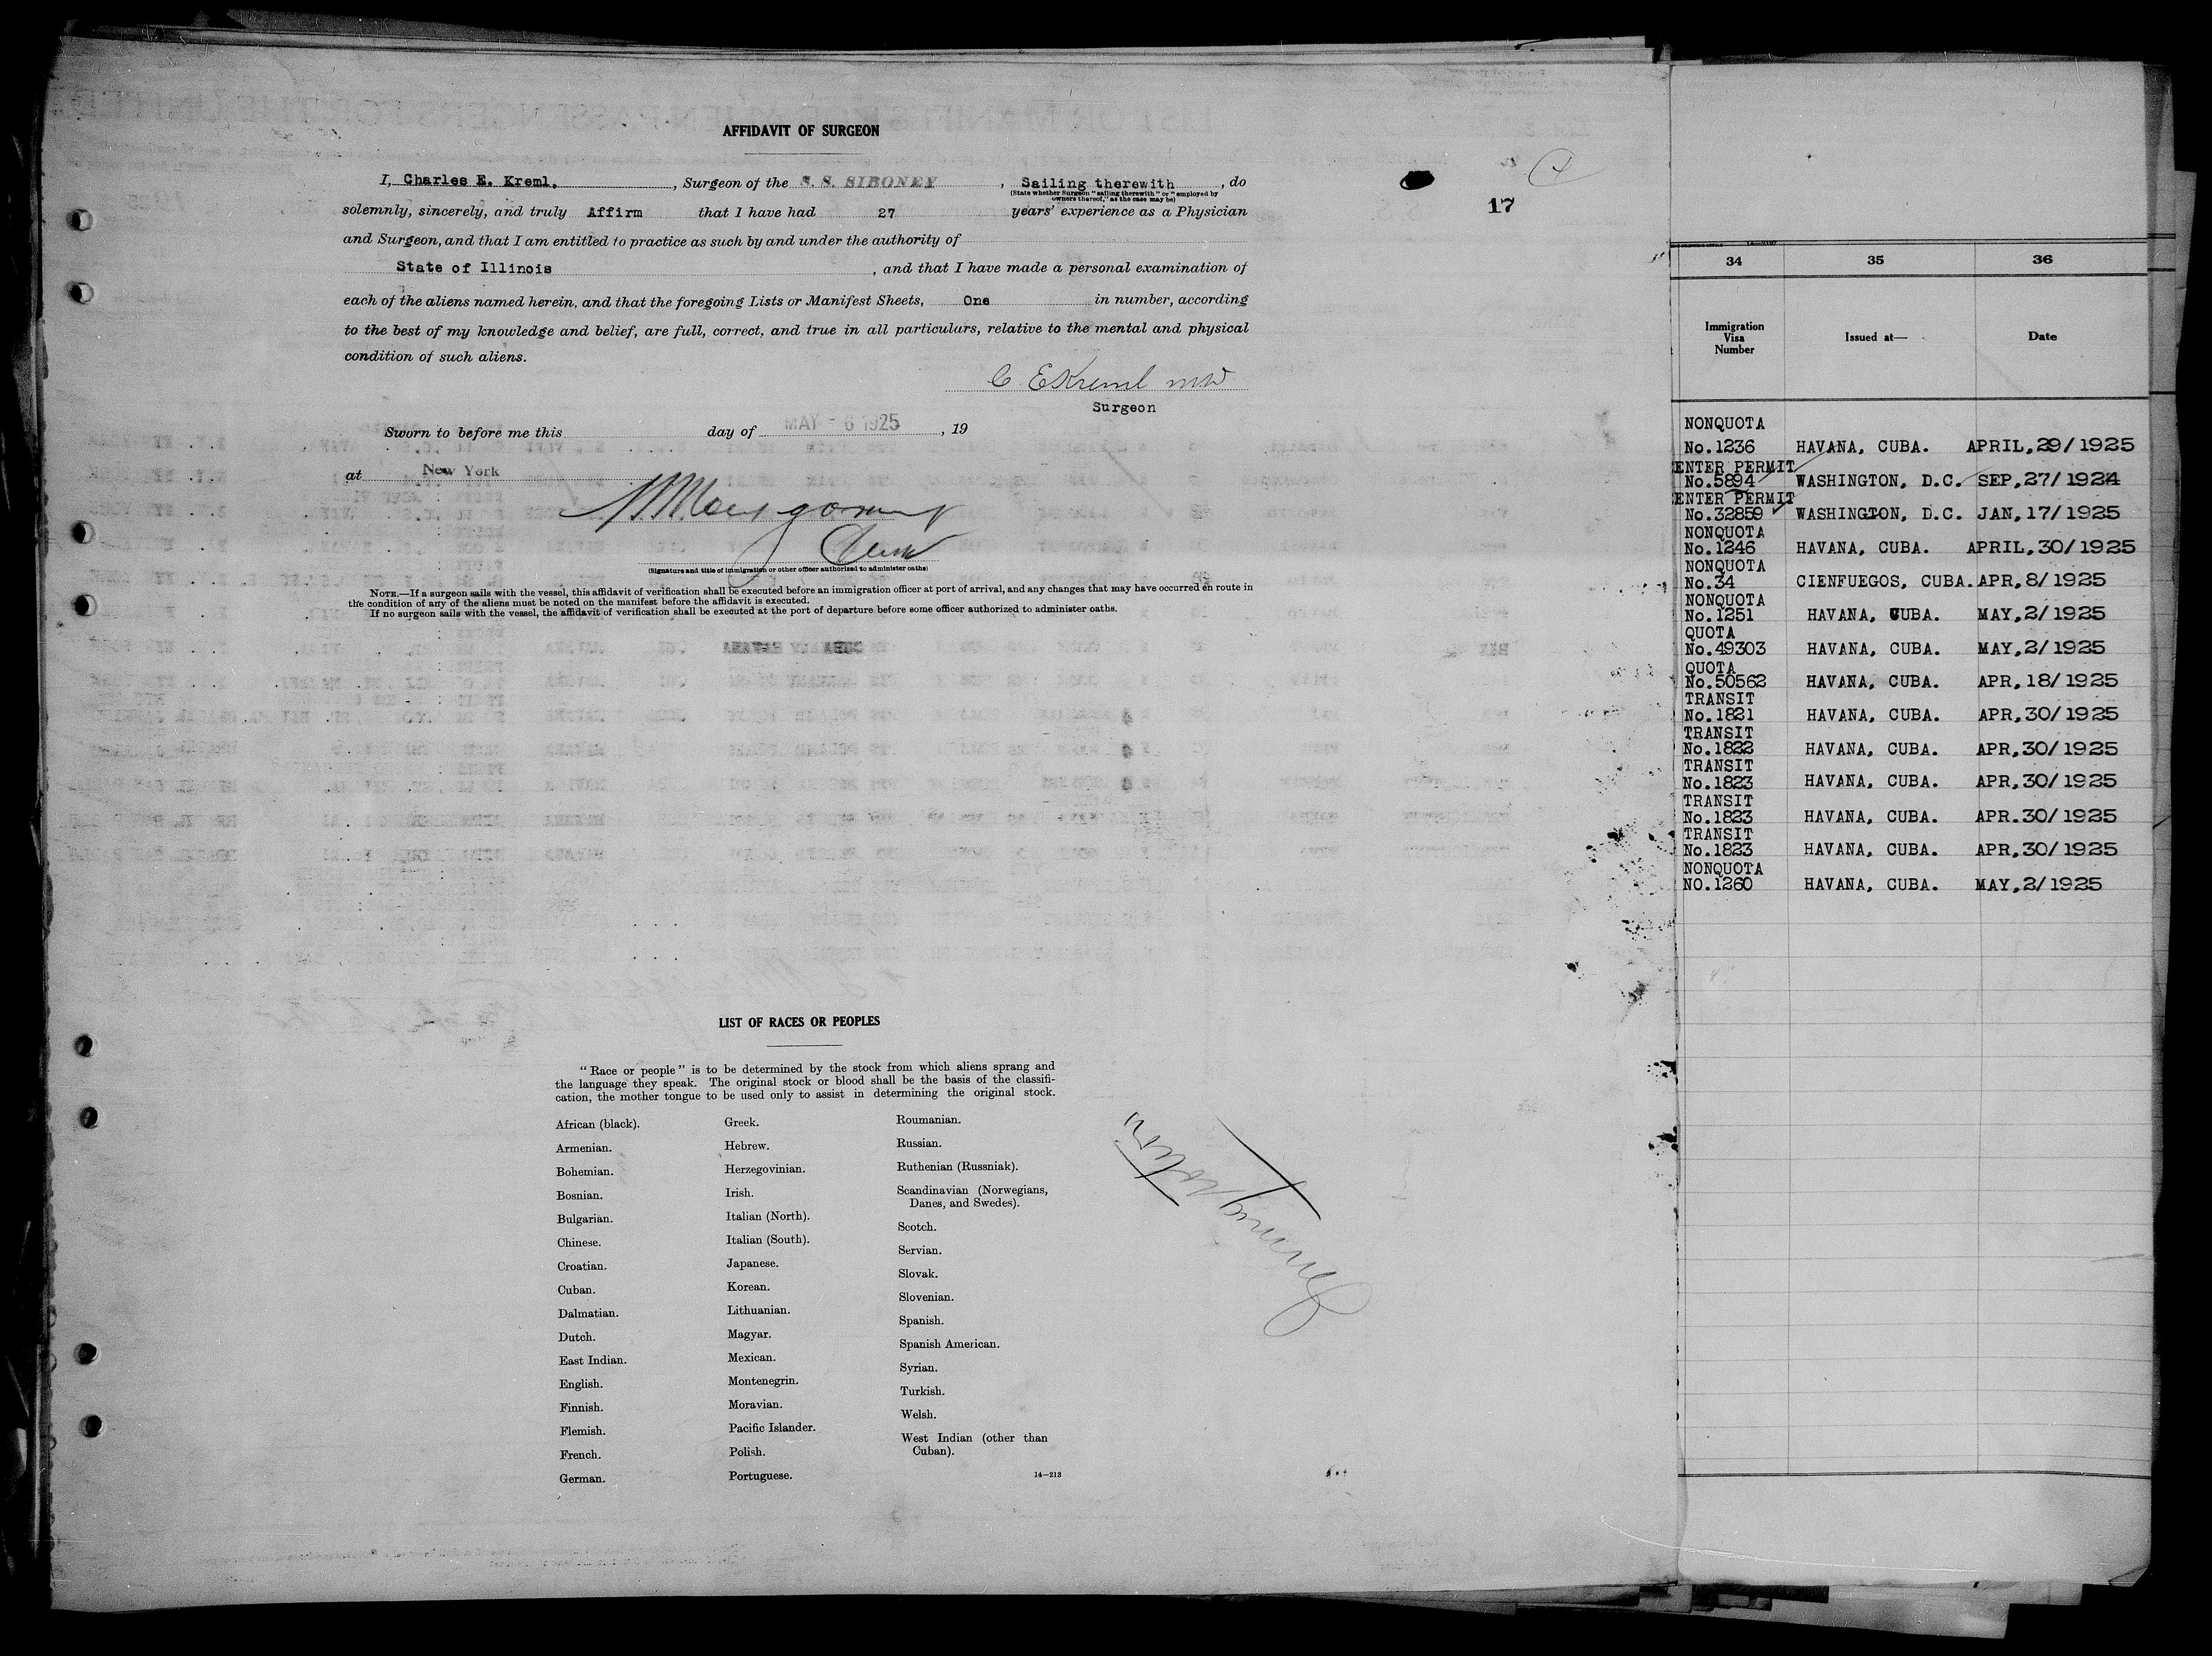 AFFIDAVIT OF SURGEON
I, Charles E. Kreml. , Surgeon of the S. S. SIBONEY , Sailing therewith , do
(State whether Surgeon "sailing therewith" or "employed by
owners thereof," as the case may be)
solemnly, sincerely, and truly Affirm that I have had 27 years' experience as a Physician
and Surgeon, and that I am entitled to practice as such by and under the authority of
State of Illinois , and that I have made a personal examination of
each of the aliens named herein, and that the foregoing Lists or Manifest Sheets, One in number, according
to the best of my knowledge and belief, are full, correct, and true in all particulars, relative to the mental and physical
condition of such aliens.
C E Kreml MD
Surgeon
Sworn to before me this day of MAY - 6 1925 , 19
at New York
(Signature and title of immigration or other officer authorized to administer oaths)
NOTE.—If a surgeon sails with the vessel, this affidavit of verification shall be executed before an immigration officer at port of arrival, and any changes that may have occurred en route in
the condition of any of the aliens must be noted on the manifest before the affidavit is executed.
If no surgeon sails with the vessel, the affidavit of verification shall be executed at the port of departure before some officer authorized to administer oaths.
17
LIST OF RACES OR PEOPLES
"Race or people" is to be determined by the stock from which aliens sprang and
the language they speak. The original stock or blood shall be the basis of the classifi-
cation, the mother tongue to be used only to assist in determining the original stock.
African (black).
Armenian.
Bohemian.
Bosnian.
Bulgarian.
Chinese.
Croatian.
Cuban.
Dalmatian.
Dutch.
East Indian.
English.
Finnish.
Flemish.
French.
German.
Greek.
Hebrew.
Herzegovinian.
Irish.
Italian (North).
Italian (South).
Japanese.
Korean.
Lithuanian.
Magyar.
Mexican.
Montenegrin.
Moravian.
Pacific Islander.
Polish.
Portuguese.
Roumanian.
Russian.
Ruthenian (Russniak).
Scandinavian (Norwegians,
Danes, and Swedes).
Scotch.
Servian.
Slovak.
Slovenian.
Spanish.
Spanish American.
Syrian.
Turkish.
Welsh.
West Indian (other than
Cuban).
14—213
34 35 36
Immigration
Visa
Number
Issued at—
Date
NONQUOTA
No.1236 HAVANA, CUBA. APRIL,29/1925
ENTER PERMIT
No.5894 WASHINGTON, D.C. SEP,27/1924
ENTER PERMIT
No.32859 WASHINGTON, D.C. JAN,17/1925
NONQUOTA
No.1246 HAVANA, CUBA. APRIL,30/1925
NONQUOTA
No.34 CIENFUEGOS, CUBA. APR,8/1925
NONQUOTA
No.1251 HAVANA, CUBA. MAY,2/1925
QUOTA
No.49303 HAVANA, CUBA. MAY,2/1925
QUOTA
No.50562 HAVANA, CUBA. APR,18/1925
TRANSIT
No.1821 HAVANA, CUBA. APR,30/1925
TRANSIT
No.1822 HAVANA, CUBA. APR,30/1925
TRANSIT
No.1823 HAVANA, CUBA. APR,30/1925
TRANSIT
No.1823 HAVANA, CUBA. APR.30/1925
TRANSIT
No.1823 HAVANA, CUBA. APR,30/1925
NONQUOTA
NO.1260 HAVANA, CUBA. MAY,2/1925